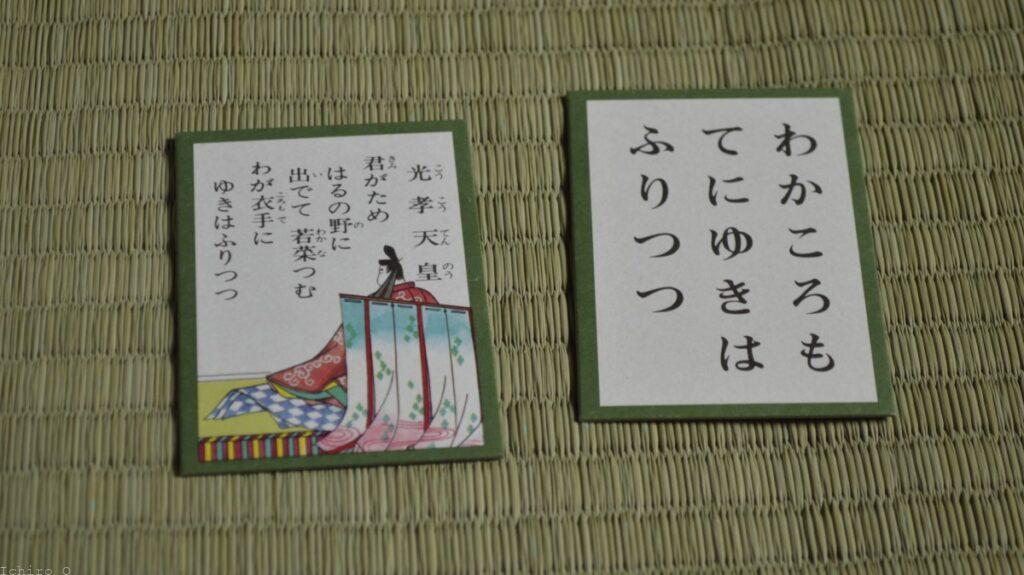 光孝天皇
君がため
はるの野に
出でて 若菜つむ
わが衣手に
ゆきはふりつつ
わかころも
てにゆきは
ふりつつ
Ichiro O